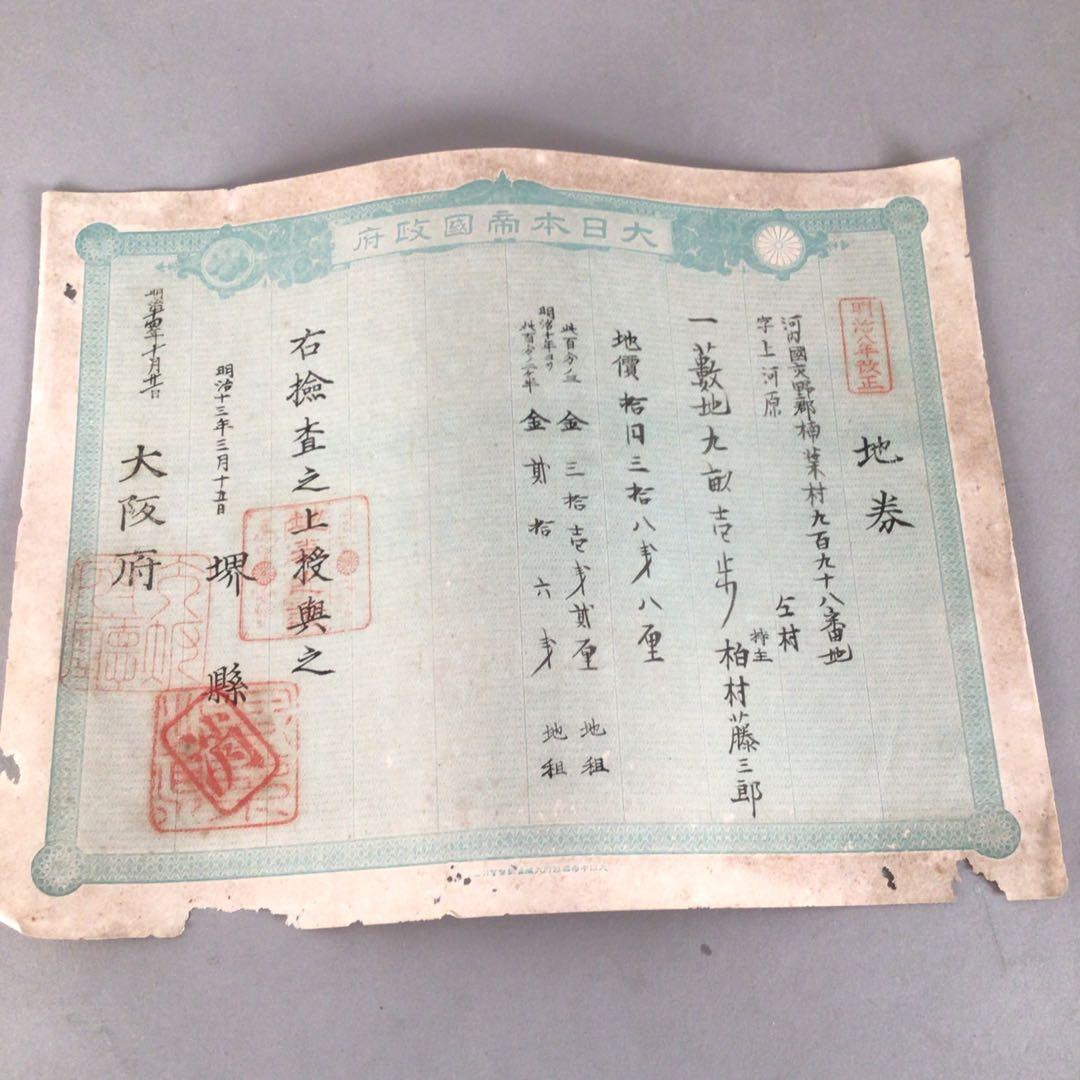 大日本帝國政府
明治八年改正
地券
河内國交野郡楠葉村九百九十八番地
字上河原
仝村
持主
柏村藤三郎
一藪地九畝壱歩
地價拾円三拾八銭八厘
此百分ノ三 金三拾壱銭貳厘 地租
明治十年ヨリ
此百分ノ二ヶ半 金貳拾六銭 地租
右撿査之上授與之
明治十三年三月十五日
堺縣
明治十四年十月廿一日
大阪府
消